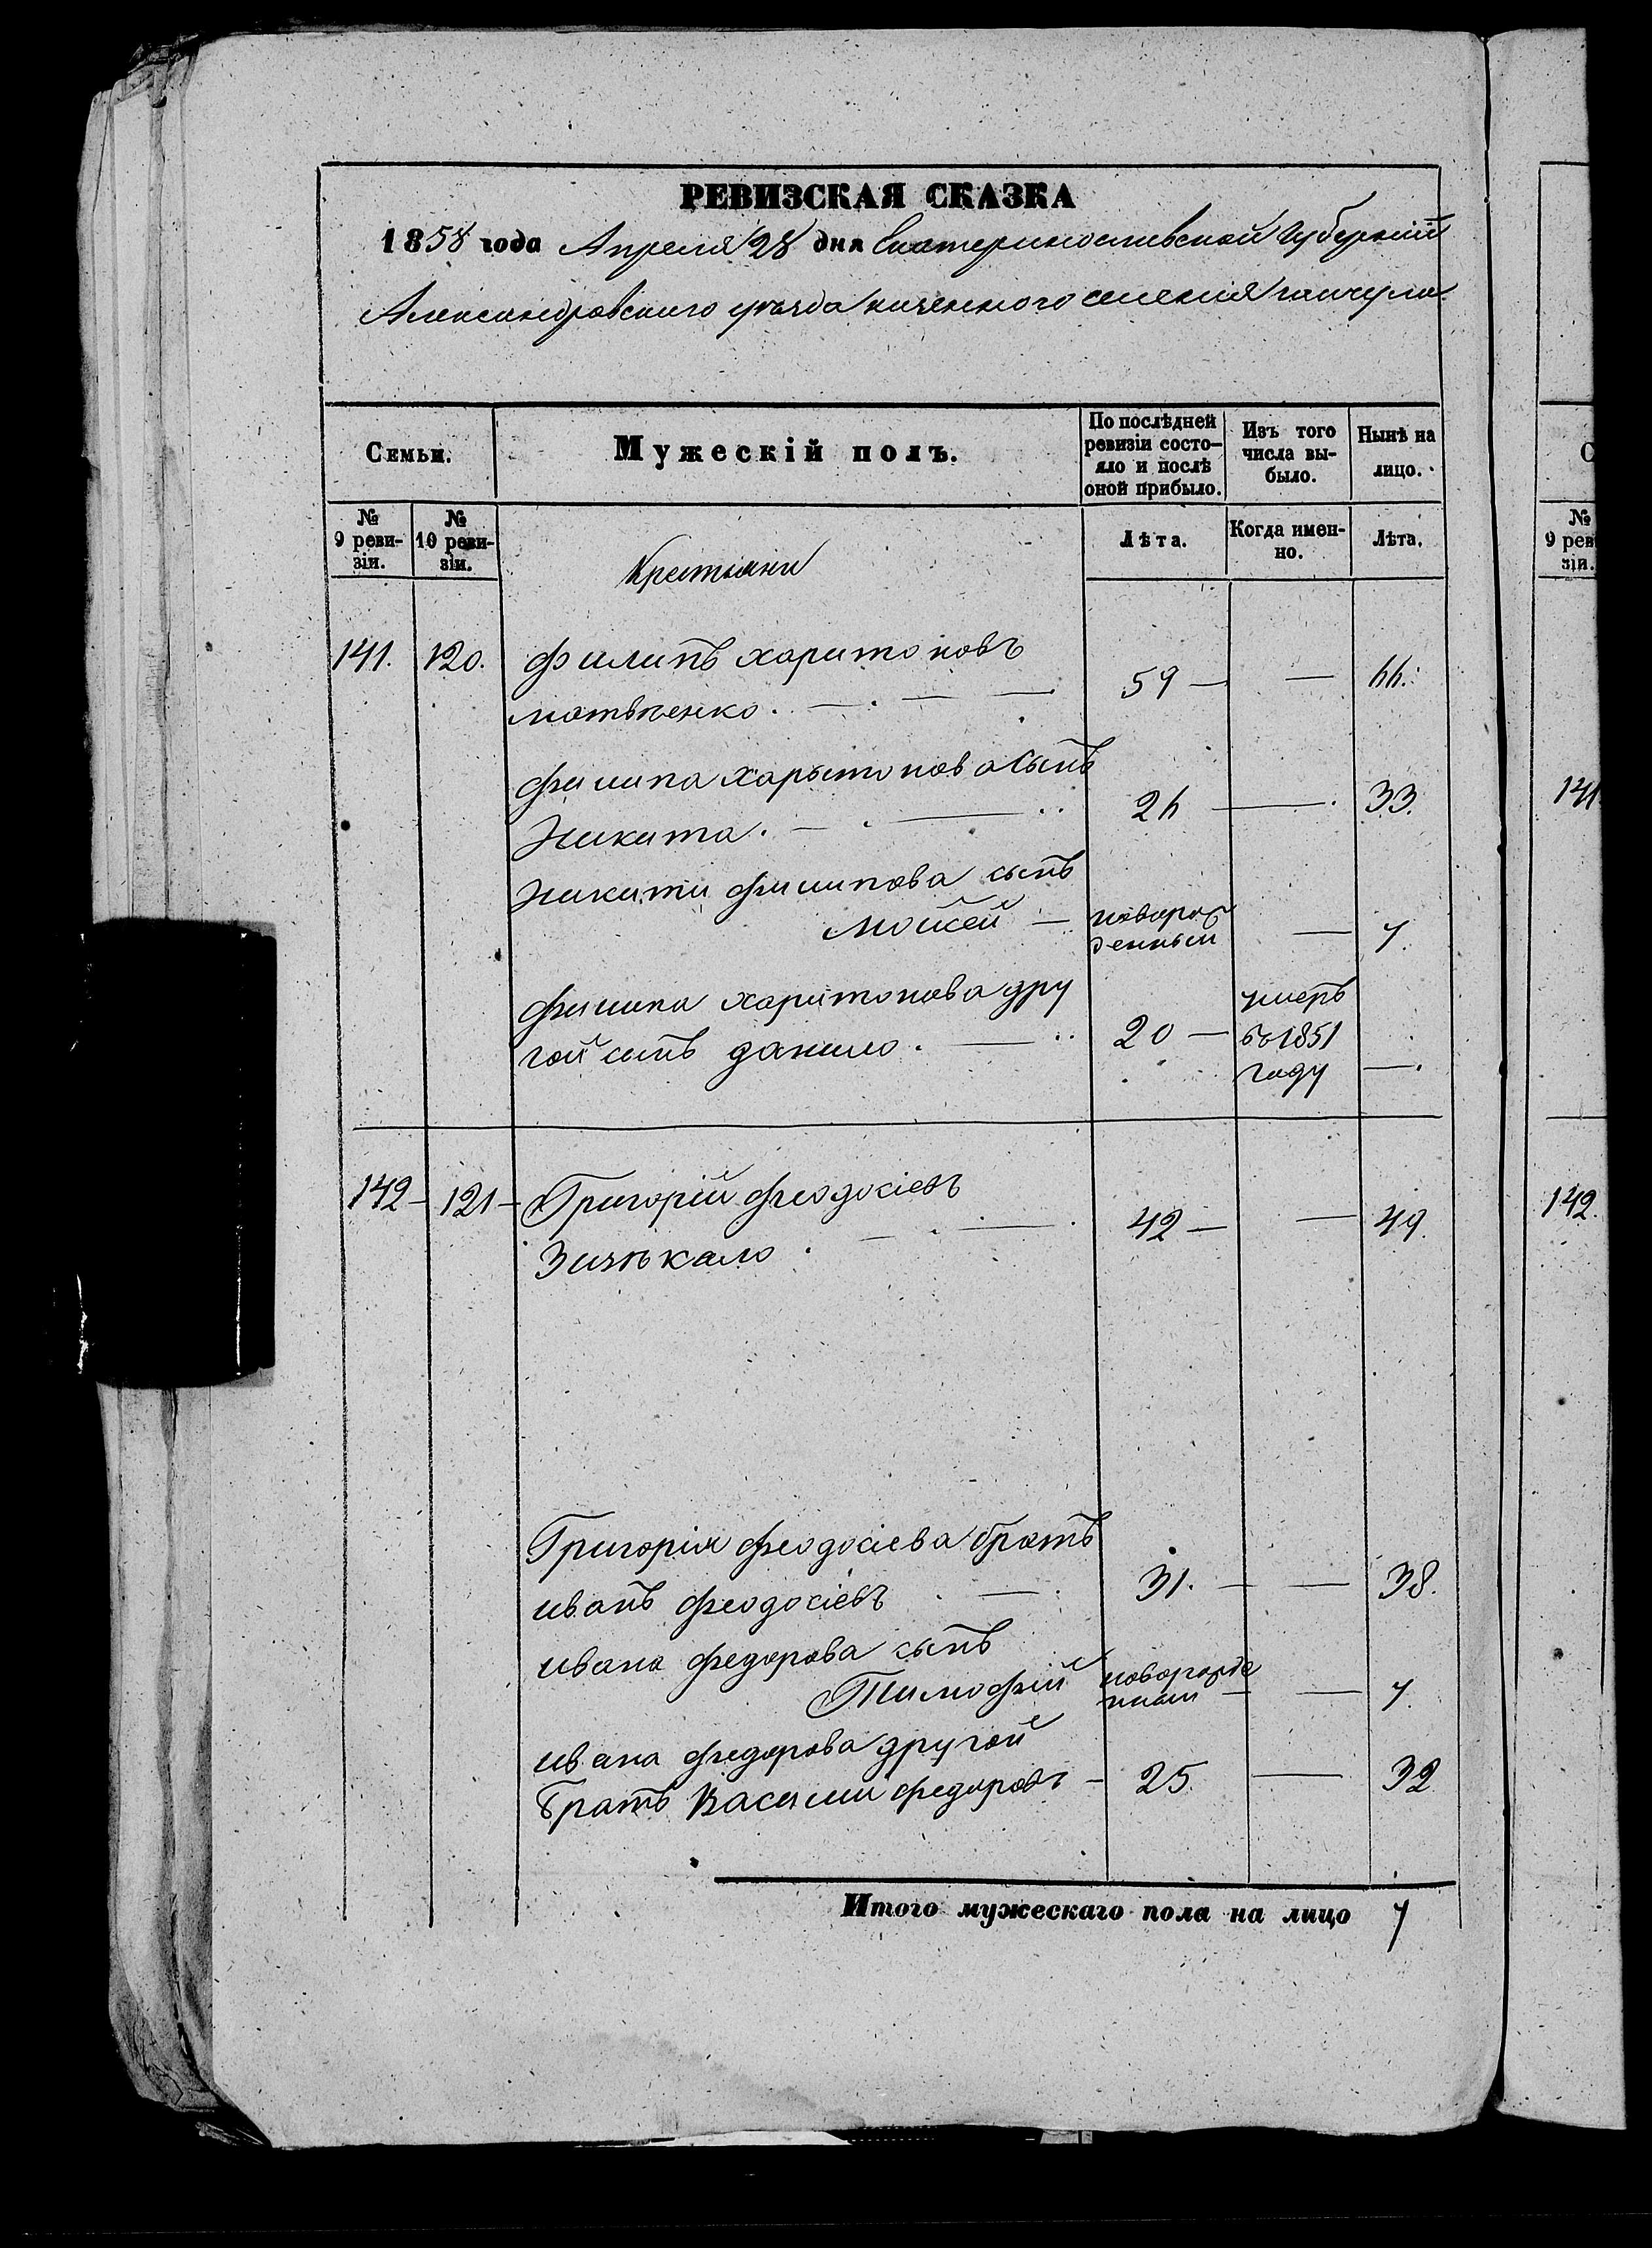 РЕВИЗСКАЯ СКАЗКА
1858 года Апреля 28 дня Екатеринославской Губерніи
Александровскаго уѣзда казенного селенія гайчула
Семьи.
Мужескій полъ.
По послѣдней ревизіи состо-
яло и послѣ
оной прибыло.
Изъ того
числа вы-
было.
Нынѣ на
лицо.
№
9 реви-
зіи.
№
10 реви-
зіи.
Крестьяни
Лѣта.
Когда имен-
но.
Лѣта.
141. 120. Филипъ харитоновъ
матвѣенко. 59 — — 66.
Филипа Харытонова Сынъ
Никита. 26 — 33.
Никити филипова сынъ
Мойсей — новорож
денный — 7.
Филипа харитонова дру
гой сынъ данило. 20 — умеръ
въ 1851
году —
142 — 121 — Григорій феодосіевъ
Зинькало 42 — — 49.
Григорія феодосіева братъ
иванъ феодосіевъ 31. — — 38.
ивана федорова сынъ
Тимофій новорожде
нный — — 7.
ивана федорова другой
братъ Василий федоровъ — 25. — 32
Итого мужескаго пола на лицо 7
С
№
9 рев
зіи.
141
142.